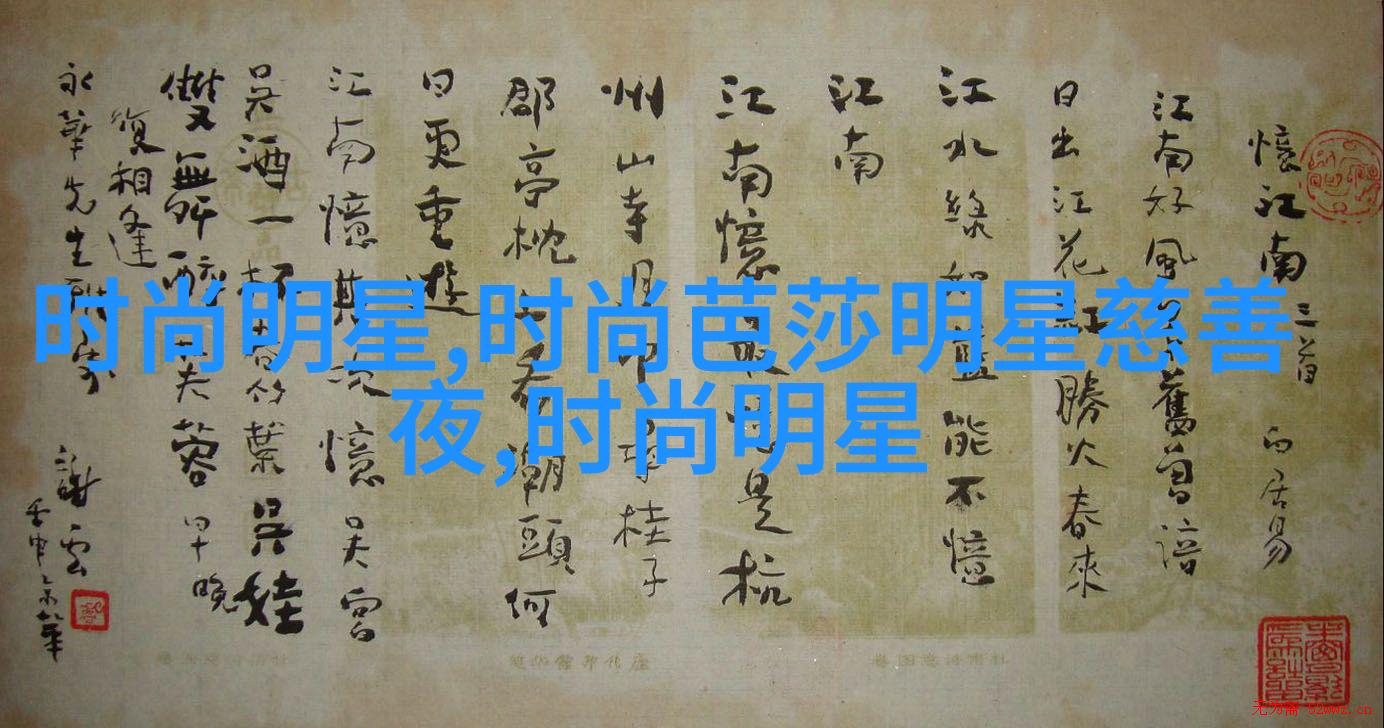 憶江南 三首 白居易
江南好風景舊曾諳
日出江花紅勝火春來
江水綠如藍能不憶
江南
江南憶最憶是杭
州山寺月中尋桂子
郡亭枕上看潮頭何
日更重遊
江南憶其次憶吳宮
吳酒一杯春竹葉吳娃
雙舞醉芙蓉早晚
復相逢
永華先生
謝雲
时尚明星,时尚芭莎明星慈善
夜,时尚明星